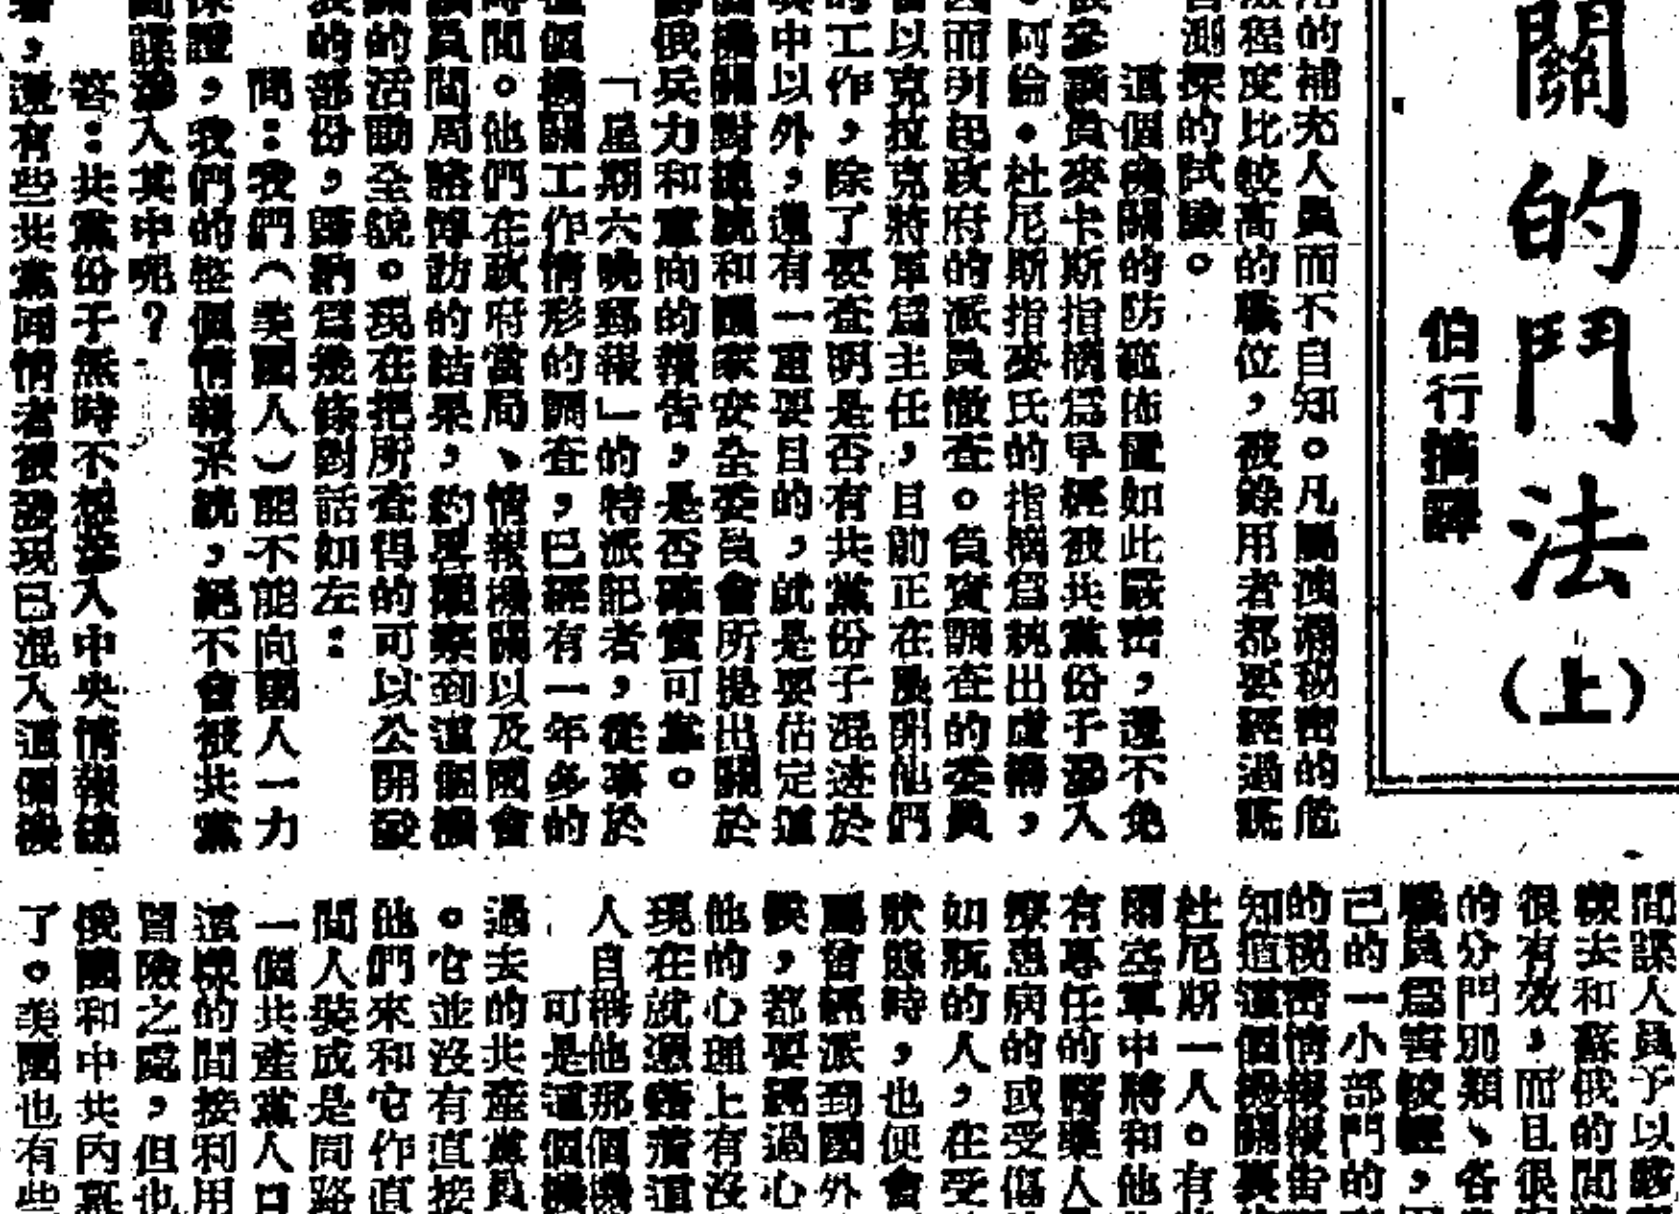 關的鬥法（上）
伯行摘譯
的補充人員而不自知。凡屬洩漏秘密的危
險程度比較高的職位，被錄用者都要經過謊
測探的試驗。
這個機關的防範佈置如此嚴密，還不免
參議員麥卡斯指摘爲早經被共黨份子混入
。阿倫・杜尼斯指麥氏的指摘爲純出虛構，
因而引起政府的派員徹查。負責調查的委員
以克拉克將軍爲主任，目前正在展開他們
的工作，除了要查明是否有共黨份子混迹於
其中以外，還有一重要目的，就是要估定這
個機關對總統和國家安全委員會所提出關於
俄兵力和意向的報告，是否確實可靠。
「星期六晚郵報」的特派記者，從事於
這個機關工作情形的調查，已經有一年多的
時間。他們在政府當局、情報機關以及國會
議員間局諮詢訪的結果，約畧觀察到這個機
關的活動全貌。現在把所查得的可以公開發
的部份，歸納爲幾條對話如左：
問：我們（美國人）能不能向國人一力
保證，我們的整個情報系統，絕不會被共黨
間諜滲入其中呢？
答：共黨份子無時不想滲入中央情報總
，還有些共黨同情者被發現已混入這個機
間諜人員予以
樣去和蘇俄的間
很有效，而且很
的分門別類、各
職員爲害較輕，
己的一小部門的
的秘密情報報告
知道這個機關裏
杜尼斯一人。有
爾空軍中將和他
有專任的醫藥人
療患病的或受傷
如玩的人，在受
狀態時，也便會
屬曾經派到國外
候，都要經過心
他的心理上有沒
現在就憑藉着這
人自稱他那個機
可是這個機
過去的共產黨員
。它並沒有直接
他們來和它作直
間人裝成是同路
一個共產黨人口
這樣的間接利用
冒險之處，但也
俄國和中共內幕
了。美國也有些